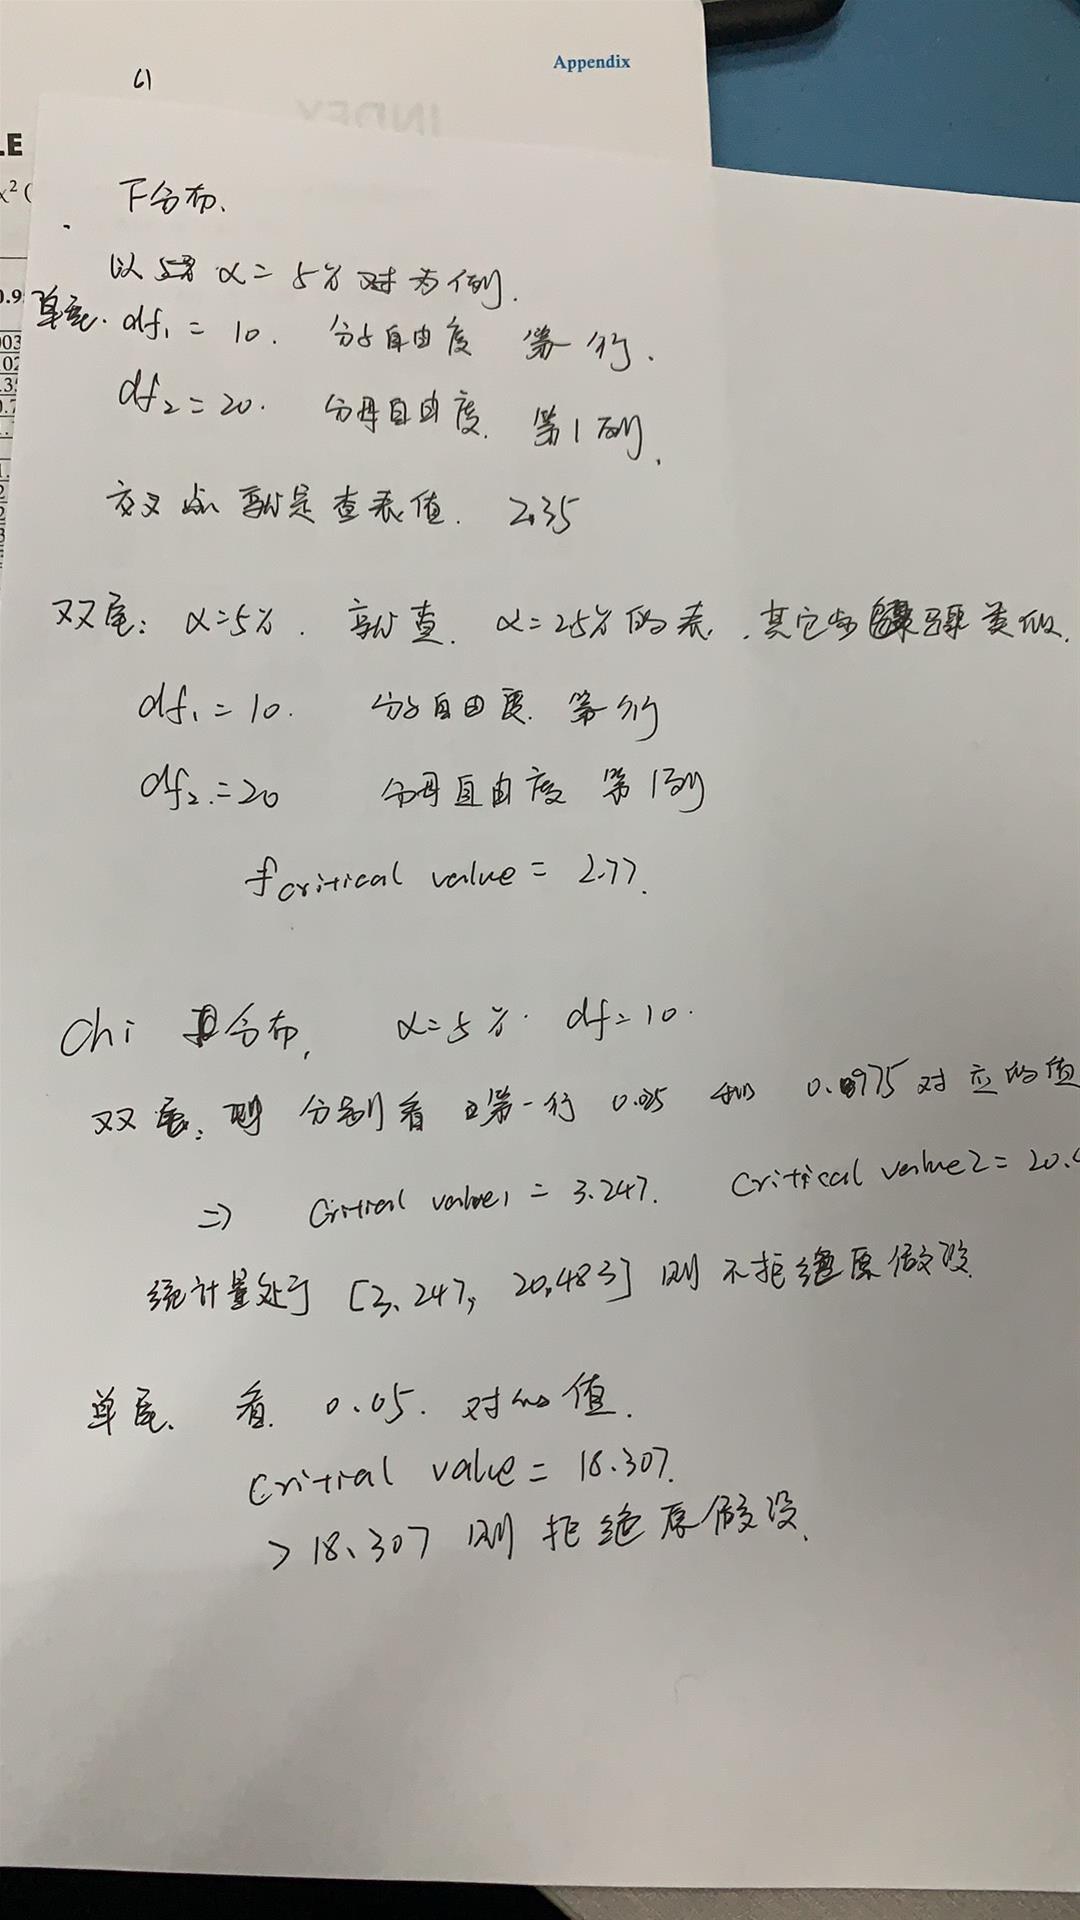 Appendix
61
INDEX
LE
x² (
F分布.
以 α = 5% 对为例.
0.9
单尾. df₁ = 10. 分子自由度 第一行.
003
df₂ = 20. 分母自由度. 第1列.
交叉点 就是查表值. 2.35
双尾: α=5%. 就查. α=2.5%的表. 其它步骤类似.
df₁ = 10. 分子自由度. 第一行
df₂ = 20 分母自由度 第1列
f critical value = 2.77.
Chi 分布, α=5%. df=10.
双尾: 则 分别看 第一行 0.025 和 0.975 对应的值
⇒ Critical value₁ = 3.247. Critical value2 = 20.4
统计量处于 [3.247, 20.483] 则不拒绝原假设
单尾. 看. 0.05. 对应值.
Critical value = 18.307.
> 18.307 则 拒绝原假设.